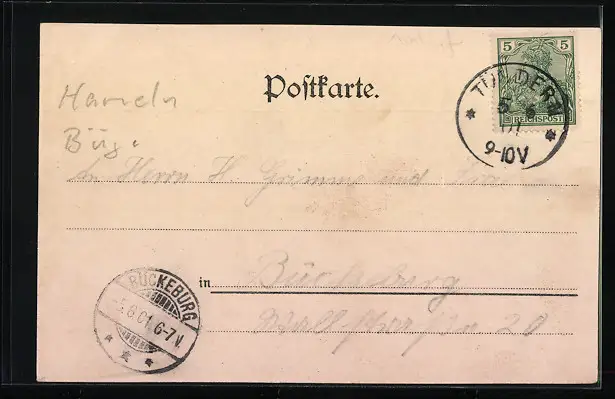 5
REICHSPOST
TÜNDERN
5 6
01
9-10V
Postkarte.
Hameln
Büg.
An Herrn H. Grimme und Frau
in Bückeburg
20
BÜCKEBURG
5.6.01.6-7N.